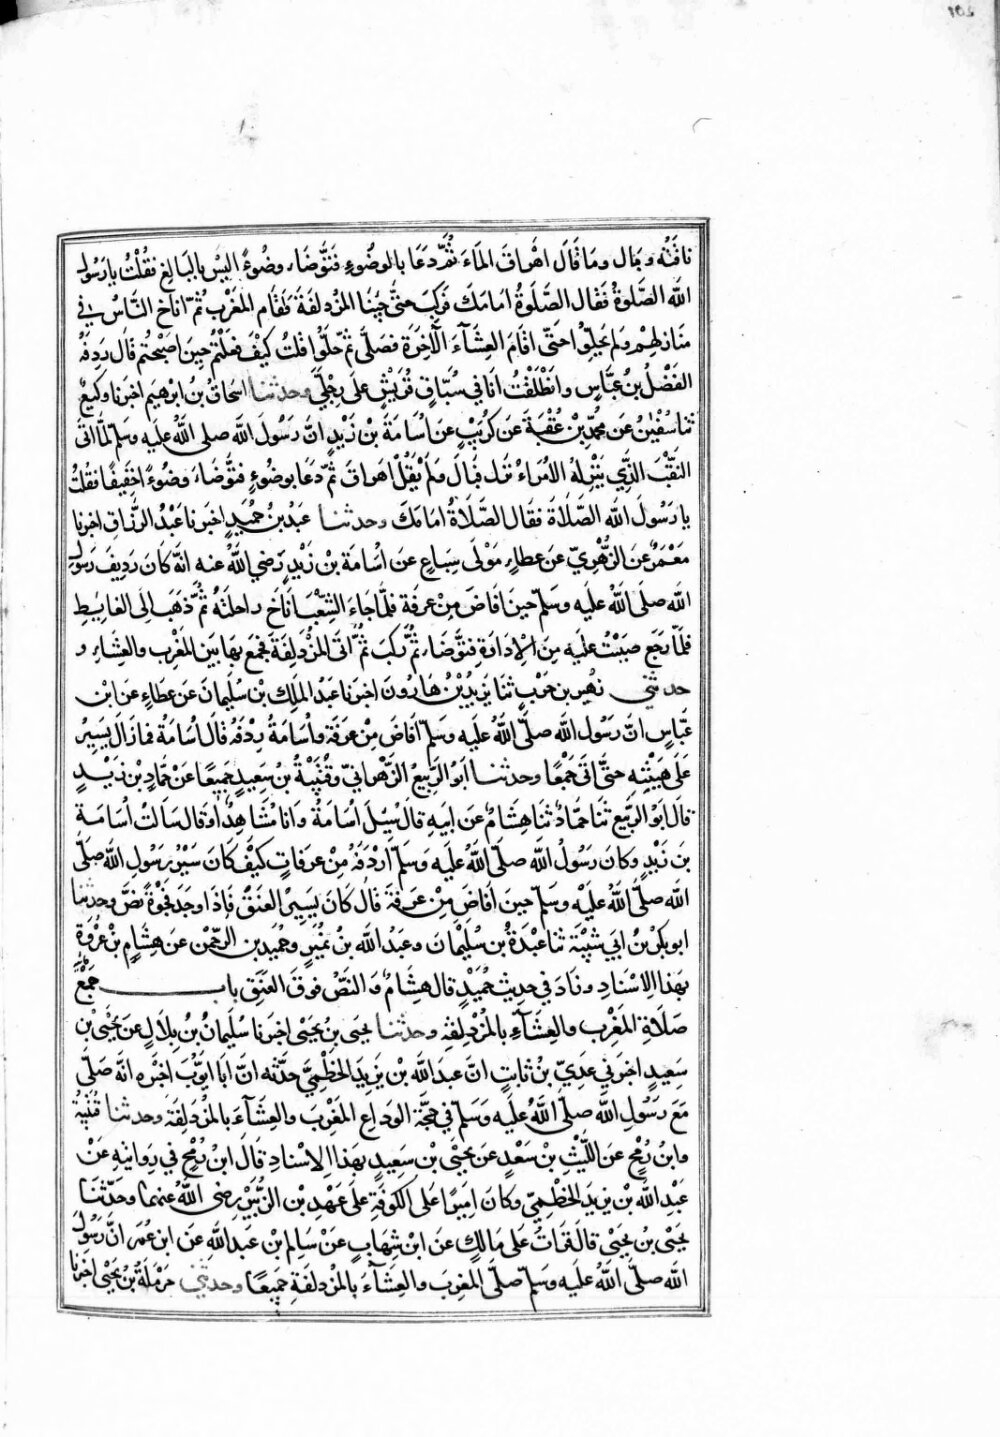 ناقَتُه وبَال ومَا قَالَ اهْرَاقَ المَاءَ ثُمَّ دَعَا بالوضُوءِ فَتَوَّضَاء وضُوءً اليسَ بالبَالِغ فقُلْتُ يا رَسُولَ
اللَّه الصَّلوةُ فَقَال الصَّلَوةُ امَامَكَ فَرَكِبَ حتّى جِئنَا المزْدلفَةَ فَقَام المَغْرِبُ ثُمّ اناخَ النَّاسُ في
منَازلهِمْ ولم يَحلّوا حتّى اقَامَ العِشَآءَ الآخِرَةَ فصَلّى ثمّ حَلّوا قلتُ كَيْفَ فعَلْتُمْ حِينَ اصْبَحْتم قال رَدِفَهُ
الفَضْلُ بنُ عبَّاسٍ وانْطَلَقْتُ انَا في سُبّاقِ قُرَيْشٍ عَلى رِجْلَيَّ وحدثنا اسحَاقُ بن ابرهيم اخبرنا وكيعٌ
ثنا سُفْيٰنُ عن محمّدِ بْنِ عُقْبَةَ عَن كُرَيْبٍ عَن اُسَامَةَ بْن زَيْدٍ انَّ رَسُولَ الله صلى اللهُ عليه وسَلم لمّا اتَى
النَّقْبَ الذّي يَنْزِلهُ الاُمَرَاءُ نَزَل فَبَالَ ولَمْ يَقُلْ اهرَاقَ ثمّ دَعَا بوضُوءٍ فتوَّضَاءَ وضُوءً اخَفِيفًا فقلتُ
يا رَسُولَ الله الصَّلَاةَ فقَال الصَّلَاةُ امَامَكَ وحدثنا عَبْدُ بن حُمَيدٍ اخبَرنا عَبْدُ الرَّزَّاقِ اخبرنا
مَعْمَرٌ عَن الزُّهْرِيّ عَن عطاءٍ مَوْلَى سِبَاعٍ عَن اُسَامَة بْن زَيْدٍ رَضي اللهُ عنه انَّه كَانَ رَدِيفَ رَسُولِ
اللَّه صلَى اللهُ عليه وَسَلم حينَ افَاضَ مِنْ عرفَة فلمّا جَاءَ الشِعْبَ اَنَاخَ راحلتَهُ ثُمَّ ذهَبَ اِلَى الغَايِطِ
فلَمّا رَجَع صبَبْتُ علَيه مِنَ الْاِدَاوَةِ فتوَّضَاء ثُمّ رَكِبَ ثمّ اتَى المُزْدَلِفَةَ فجَمعَ بهَا بَين المَغْربِ والعِشَاءِ و
حدثني زهير بن حَربٍ ثنا يَزِيدُ بْنُ هَارُونَ اخبَرنا عَبْدُ الملَكِ بْن سُلَيمانَ عَن عطَاءٍ عَن ابْن
عَبّاسٍ انَّ رَسُولَ الله صلّى اللهُ علَيه وسَلم افَاضَ مِنْ عَرَفَة واُسَامَةُ رِدْفُهُ قَالَ اُسَامَةُ فمَا زَالَ يَسِيرُ
عَلى هَيْئَتِهِ حتَّى اتَى جَمْعًا وحدثنا ابَو الرّبيعُ الزَّهْرانيّ وقُتَيْبَةُ بنُ سَعِيدٍ جَميعًا عَنْ حَمّادِ بن زَيْدٍ
قالَ ابَوْ الربَيع ثَنا حمّادٌ ثنَا هِشَامٌ عَن ابَيهِ قَالَ سُئِلَ اُسَامَةُ وَانا مُشاهِدٌ اوقَالَ سَالتُ اُسَامَة
بنَ زَيْدٍ وكَانَ رَسُولُ اللَّه صلَّى اللهُ علَيه وَسَلمَ اَرْدَفَهُ مِنْ عرفاتٍ كَيْفَ كَانَ سَيْرُ رَسُولِ الله صَلّى
اللَّه صلَّى اللهُ عليْه وسَلمَ حينَ افَاضَ مِنْ عَرفَةَ قالَ كَانَ يَسِيرُ العنَقَ فَاِذَا وجَدَ فَجْوَةً نَصَّ وحدثنا
ابو بكرْ بْنُ ابي شَيْبَة ثنا عَبْدَةُ بن سُلَيْمانَ وعَبدُ الله بْنُ نُمَيْرٍ وحُمَيْدُ بن الرحّمٰنِ عَن هِشَامِ بْن عُرْوَةَ
بهَذا الاِسْنادِ وزادَ في حَديثِ حُمَيْدٍ قال هِشَامٌ وَالنّصّ فوقَ العنَقِ بابـــ جَمْعِ
صَلَاةِ المَغْرِب والعِشَآءِ بالمُزْدلِفَه وحدثنا يحيَى بن يَحيَى اخبرَنا سُلَيمانُ بْنُ بِلَالٍ عَن يَحْيَى بْن
سَعِيدٍ اخبَرني عَدِيّ بْنُ ثَابِتٍ انَّ عَبدَ اللَّه بْن يَزيدَ الخَطْمِيَّ حَدَّثَه انّ ابَا ايَوُّبَ اخْبَره انَّه صَلَّى
مَعَ رَسُولِ الله صلَّى اللَّهُ عليْه وَسَلمَ في حَجّةِ الودَاعِ المَغْرِبَ والعِشَآءَ بالمزْدَلِفَة وحدثنا قُتَيْبَةُ
وابنُ رُمْحٍ عَن اللّيْثِ بْن سَعْدٍ عَن يَحْيَى بْنِ سَعِيدٍ بهَذا الاِسْنادِ قَالَ ابْنُ رُمْحٍ في روَايَتِهِ عَنْ
عَبْدِ اللَّه بْن يَزِيدَ الخَطْمِيّ وكَانَ اميرًا عَلى الكُوفَةِ علَى عَهْدِ بْن الزُّبَيْر رضى اللهُ عنهما وحَدّثنَا
يَحْيَى بْنُ يَحيَى قَالَ قرَاتُ علَى مَالكٍ عَن ابْنِ شِهَابٍ عَنْ سَالمِ ابْن عَبدِ الله عَن ابنِ عُمَرَ انَّ رَسُولَ
اللَّه صلَّى اللَّهُ عليْه وسَلمَ صلَّى المَغرِبَ والعِشَآءَ بالمُزْدلفَةِ جَميعًا وحدثني حَرْملَةُ بْنُ يَحيَى اخبَرنا